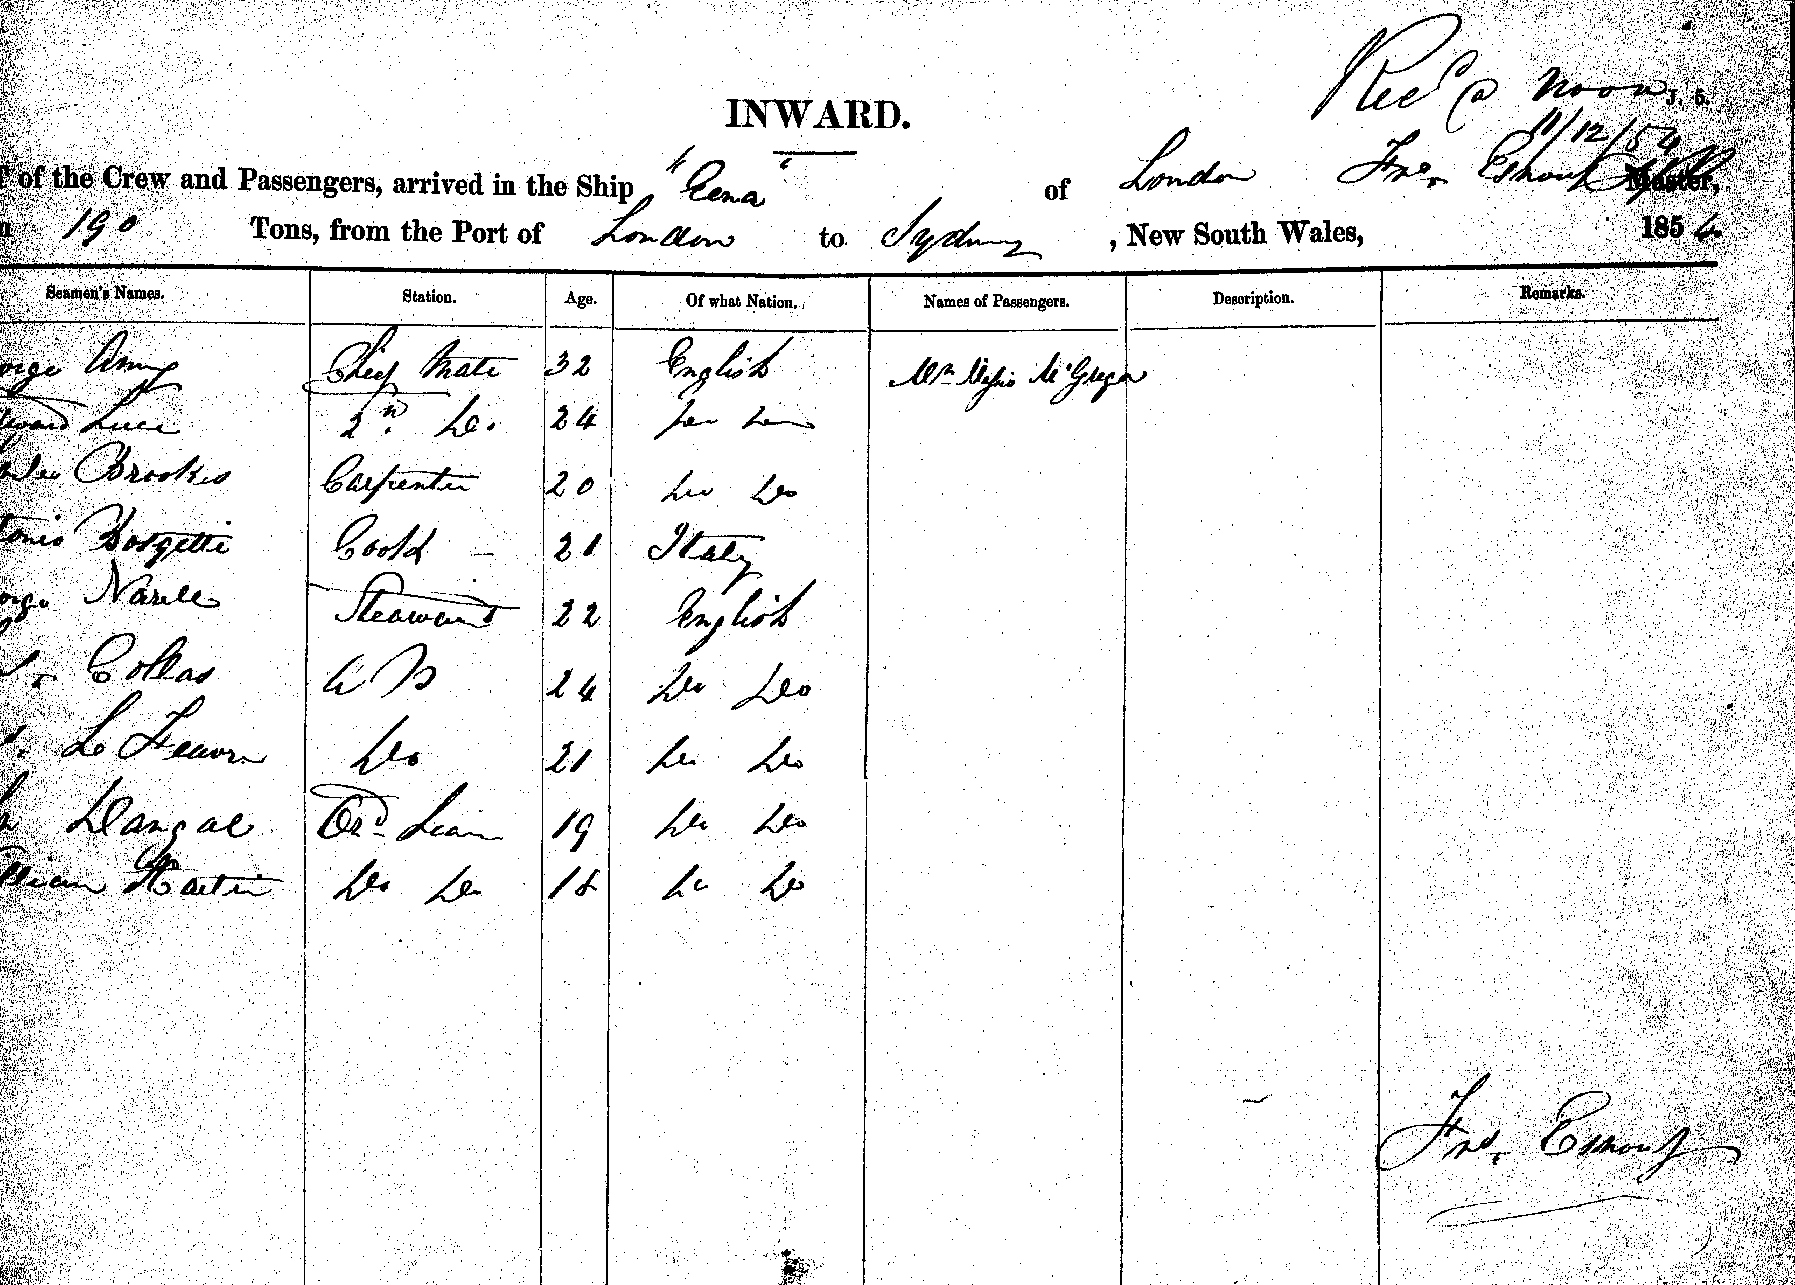 Recd @ noon J. 5.
INWARD.
11/12/54
of the Crew and Passengers, arrived in the Ship "Eena" of London Fras. Esnouf Master,
190 Tons, from the Port of London to Sydney, New South Wales, 1854
Seamen's Names. Station. Age. Of what Nation. Names of Passengers. Description. Remarks.
orge Chief Mate 32 English McGregor
ward Luce 2n. Do. 24 Do Do
Brookes Carpenter 20 Do Do
tonio Borgetti Cook 21 Italy
orge Steward 22 English
Collas A B 24 Do Do
Le Feavor Do 21 Do Do
Dangal Ord Seam 19 Do Do
lliam Martin Do Do 18 Do Do
Fras. Esnouf